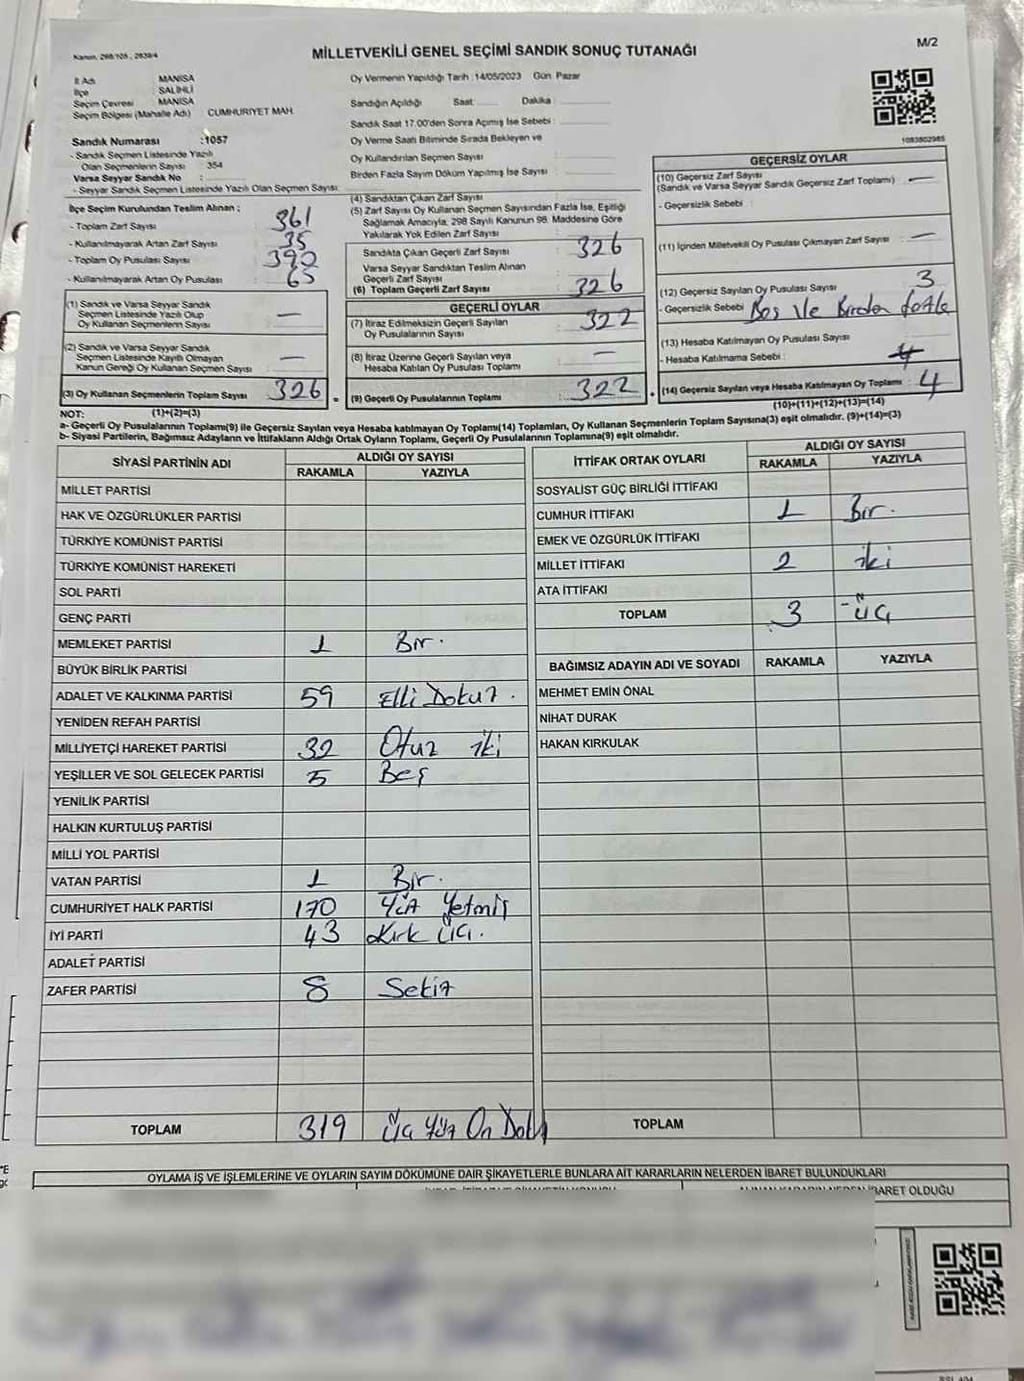 Kanun, 298/105 , 2839/4
MİLLETVEKİLİ GENEL SEÇİMİ SANDIK SONUÇ TUTANAĞI
M/2
İl Adı MANİSA
İlçe SALİHLİ
Seçim Çevresi MANİSA
Seçim Bölgesi (Mahalle Adı) CUMHURİYET MAH.
Oy Vermenin Yapıldığı Tarih :14/05/2023 Gün Pazar
Sandığın Açıldığı Saat Dakika :
Sandık Saat 17.00'den Sonra Açımış İse Sebebi :
Oy Verme Saati Bitiminde Sırada Bekleyen ve
Oy Kullandırılan Seçmen Sayısı
Birden Fazla Sayım Döküm Yapılmış İse Sayısı :
1083802985
Sandık Numarası :1057
- Sandık Seçmen Listesinde Yazılı
Olan Seçmenlerin Sayısı : 354
Varsa Seyyar Sandık No :
- Seyyar Sandık Seçmen Listesinde Yazılı Olan Seçmen Sayısı:
İlçe Seçim Kurulundan Teslim Alınan ;
- Toplam Zarf Sayısı : 361
- Kullanılmayarak Artan Zarf Sayısı : 35
- Toplam Oy Pusulası Sayısı : 390
- Kullanılmayarak Artan Oy Pusulası : 65
(1) Sandık ve Varsa Seyyar Sandık
Seçmen Listesinde Yazılı Olup
Oy Kullanan Seçmenlerin Sayısı : —
(2) Sandık ve Varsa Seyyar Sandık
Seçmen Listesinde Kayıtlı Olmayan
Kanun Gereği Oy Kullanan Seçmen Sayısı : —
(3) Oy Kullanan Seçmenlerin Toplam Sayısı : 326 =
(4) Sandıktan Çıkan Zarf Sayısı
(5) Zarf Sayısı Oy Kullanan Seçmen Sayısından Fazla İse, Eşitliği
Sağlamak Amacıyla, 298 Sayılı Kanunun 98. Maddesine Göre
Yakılarak Yok Edilen Zarf Sayısı
Sandıkta Çıkan Geçerli Zarf Sayısı : 326
Varsa Seyyar Sandıktan Teslim Alınan
Geçerli Zarf Sayısı
(6) Toplam Geçerli Zarf Sayısı : 326
GEÇERLİ OYLAR
(7) İtiraz Edilmeksizin Geçerli Sayılan
Oy Pusulalarının Sayısı : 322
(8) İtiraz Üzerine Geçerli Sayılan veya
Hesaba Katılan Oy Pusulası Toplamı : —
(9) Geçerli Oy Pusulalarının Toplamı : 322
GEÇERSİZ OYLAR
(10) Geçersiz Zarf Sayısı
(Sandık ve Varsa Seyyar Sandık Geçersiz Zarf Toplamı) —
- Geçersizlik Sebebi :
(11) İçinden Milletvekili Oy Pusulası Çıkmayan Zarf Sayısı : —
(12) Geçersiz Sayılan Oy Pusulası Sayısı : 3
- Geçersizlik Sebebi : Boş Ve Birden fazla
(13) Hesaba Katılmayan Oy Pusulası Sayısı
- Hesaba Katılmama Sebebi :
(14) Geçersiz Sayılan veya Hesaba Katılmayan Oy Toplamı : 4
(10)+(11)+(12)+(13)=(14)
NOT: (1)+(2)=(3)
a- Geçerli Oy Pusulalarının Toplamı(9) ile Geçersiz Sayılan veya Hesaba katılmayan Oy Toplamı(14) Toplamları, Oy Kullanan Seçmenlerin Toplam Sayısına(3) eşit olmalıdır. (9)+(14)=(3)
b- Siyasi Partilerin, Bağımsız Adayların ve İttifakların Aldığı Ortak Oyların Toplamı, Geçerli Oy Pusulalarının Toplamına(9) eşit olmalıdır.
SİYASİ PARTİNİN ADI ALDIĞI OY SAYISI
RAKAMLA YAZIYLA
MİLLET PARTİSİ
HAK VE ÖZGÜRLÜKLER PARTİSİ
TÜRKİYE KOMÜNİST PARTİSİ
TÜRKİYE KOMÜNİST HAREKETİ
SOL PARTİ
GENÇ PARTİ
MEMLEKET PARTİSİ 1 Bir.
BÜYÜK BİRLİK PARTİSİ
ADALET VE KALKINMA PARTİSİ 59 Elli Dokuz.
YENİDEN REFAH PARTİSİ
MİLLİYETÇİ HAREKET PARTİSİ 32 Otuz iki
YEŞİLLER VE SOL GELECEK PARTİSİ 5 Beş
YENİLİK PARTİSİ
HALKIN KURTULUŞ PARTİSİ
MİLLİ YOL PARTİSİ
VATAN PARTİSİ 1 Bir.
CUMHURİYET HALK PARTİSİ 170 Yüz Yetmiş
İYİ PARTİ 43 Kırk üç.
ADALET PARTİSİ
ZAFER PARTİSİ 8 Sekiz
TOPLAM 319 Üç Yüz On
İTTİFAK ORTAK OYLARI ALDIĞI OY SAYISI
RAKAMLA YAZIYLA
SOSYALİST GÜÇ BİRLİĞİ İTTİFAKI
CUMHUR İTTİFAKI 1 Bir.
EMEK VE ÖZGÜRLÜK İTTİFAKI
MİLLET İTTİFAKI 2 iki
ATA İTTİFAKI
TOPLAM 3 - üç
BAĞIMSIZ ADAYIN ADI VE SOYADI RAKAMLA YAZIYLA
MEHMET EMİN ÖNAL
NİHAT DURAK
HAKAN KIRKULAK
TOPLAM
OYLAMA İŞ VE İŞLEMLERİNE VE OYLARIN SAYIM DÖKÜMÜNE DAİR ŞİKAYETLERLE BUNLARA AİT KARARLARIN NELERDEN İBARET BULUNDUKLARI
OLDUĞU